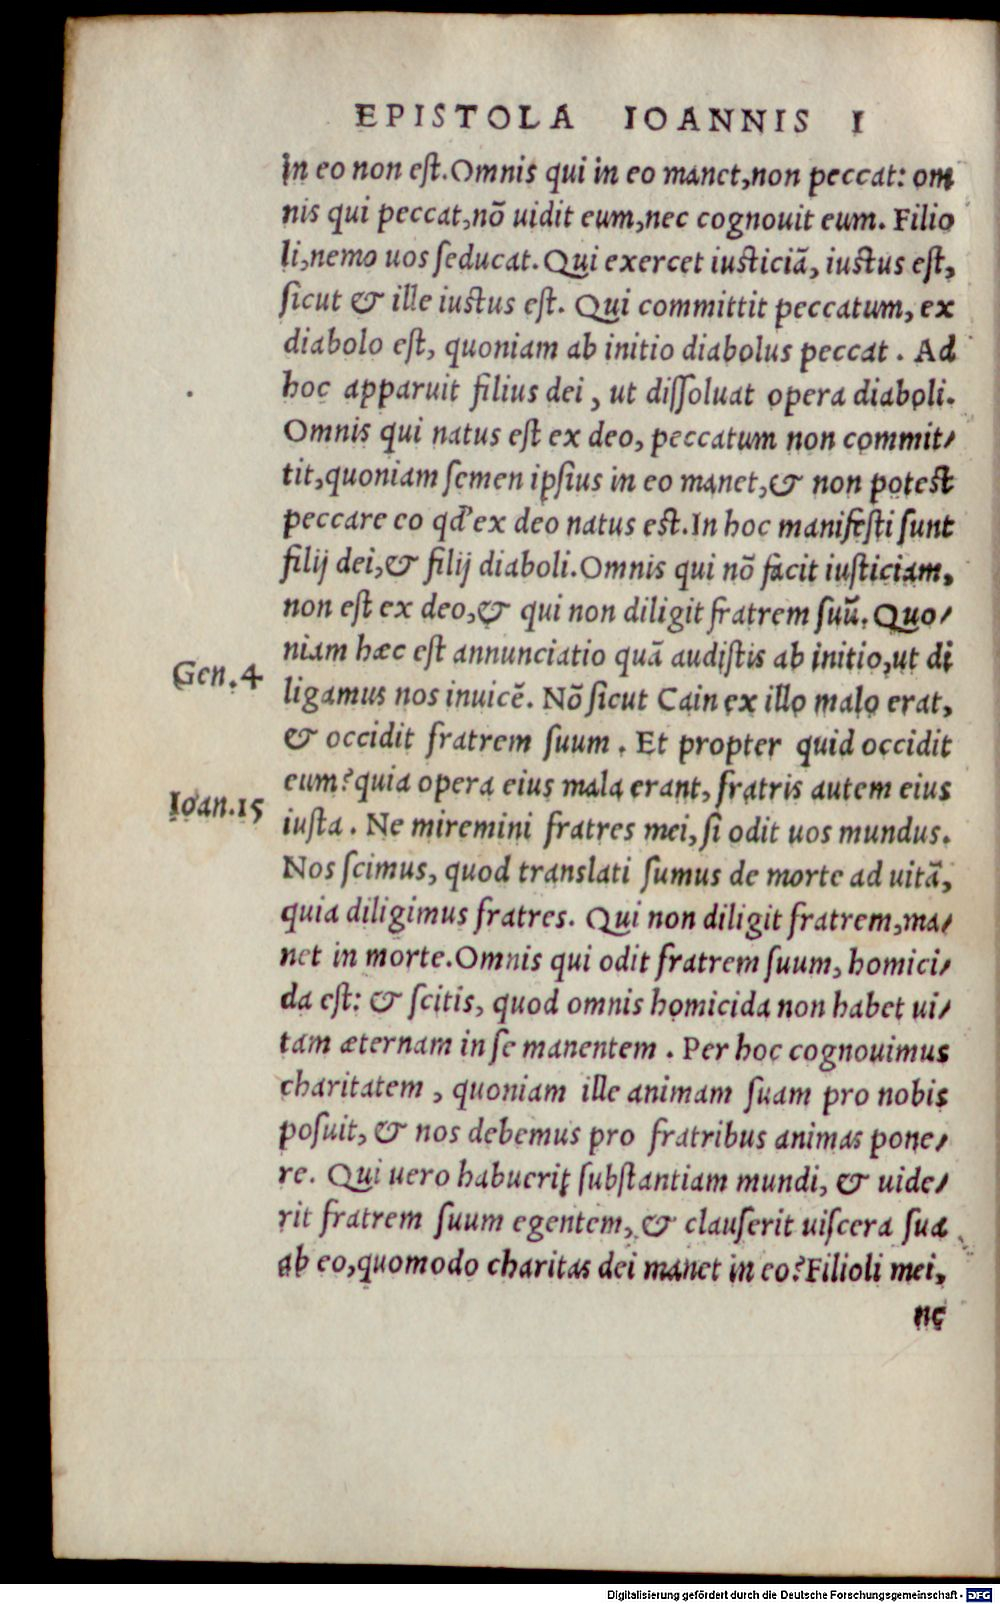 EPISTOLA IOANNIS I
in eo non eſt. Omnis qui in eo manet, non peccat: om
nis qui peccat, nō uidit eum, nec cognouit eum. Filio
li, nemo uos ſeducat. Qui exercet iuſticiā, iuſtus eſt,
ſicut & ille iuſtus eſt. Qui committit peccatum, ex
diabolo eſt, quoniam ab initio diabolus peccat. Ad
hoc apparuit filius dei, ut diſſoluat opera diaboli.
Omnis qui natus eſt ex deo, peccatum non commit/
tit, quoniam ſemen ipſius in eo manet, & non poteſt
peccare eo qđ ex deo natus eſt. In hoc manifeſti ſunt
filij dei, & filij diaboli. Omnis qui nō facit iuſticiam,
non eſt ex deo, & qui non diligit fratrem ſuū. Quo/
niam hæc eſt annunciatio quā audiſtis ab initio, ut di
Gen. 4
ligamus nos inuicē. Nō ſicut Cain ex illo malo erat,
& occidit fratrem ſuum. Et propter quid occidit
eum? quia opera eius mala erant, fratris autem eius
Ioan. 15
iuſta. Ne miremini fratres mei, ſi odit uos mundus.
Nos ſcimus, quod translati ſumus de morte ad uitā,
quia diligimus fratres. Qui non diligit fratrem, ma/
net in morte. Omnis qui odit fratrem ſuum, homici/
da eſt: & ſcitis, quod omnis homicida non habet ui/
tam æternam in ſe manentem. Per hoc cognouimus
charitatem, quoniam ille animam ſuam pro nobis
poſuit, & nos debemus pro fratribus animas pone/
re. Qui uero habuerit ſubſtantiam mundi, & uide/
rit fratrem ſuum egentem, & clauſerit uiſcera ſua
ab eo, quomodo charitas dei manet in eo? Filioli mei,
ne
Digitalisierung gefördert durch die Deutsche Forschungsgemeinschaft - DFG